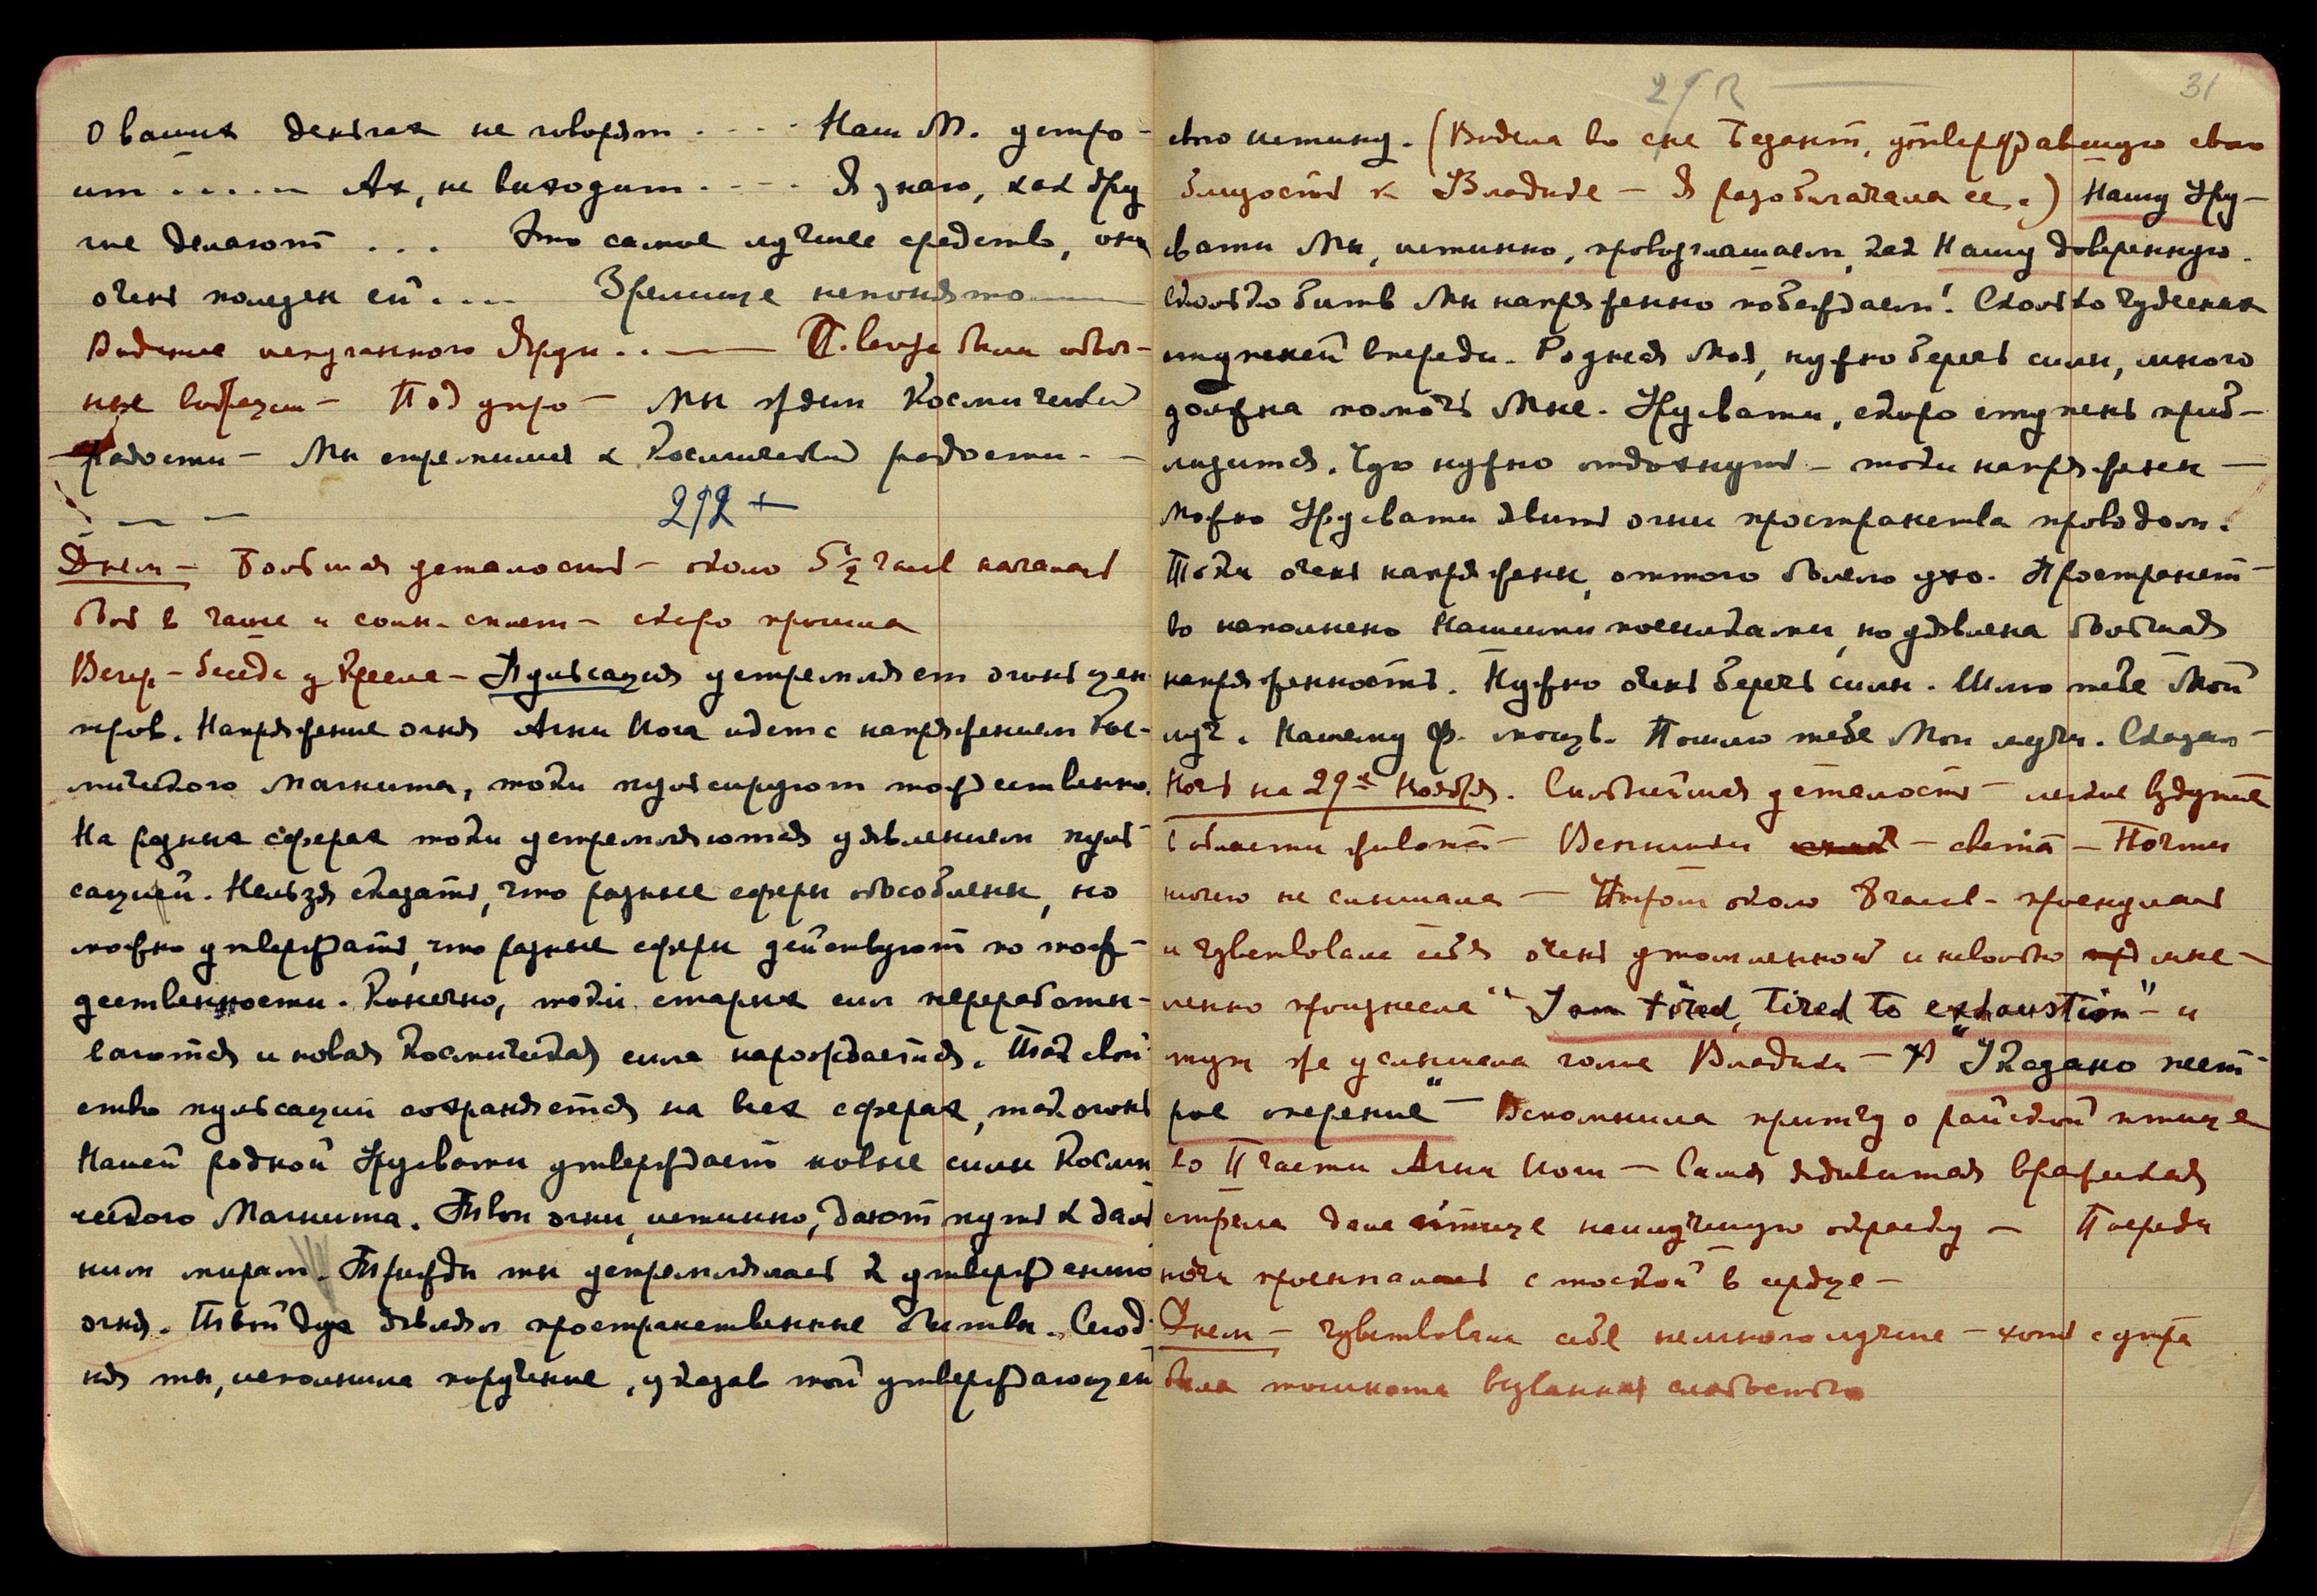 О ваших деньгах не говорят . . . . Наш М. устро-
ит . . . . . Ах, не выходит . . . . Я знаю, как дру
гие делают . . . Это самое лучшее средство, она
очень полезен ей . . . . Зрелище непонято
Видение испуганного Яруи . . — были облоч-
ные вибрации — Под утро — Мы ждем Космической
Радости — Мы стремимся к Космической радости. —
292 +
Днем — Большая усталость — около 5 1/2 часов началась
боль в чаше и солн. сплет — скоро прошла
Вечер — беседа у Кресла — Пульсация устремляет огонь цен-
тров. Напряжение огня Агни Йога идет с напряжением Кос-
мического Магнита, токи пульсируют тождественно.
На разных сферах токи устремляются уявлением пуль-
саций. Нельзя сказать, что разные сферы обособлены, но
можно утверждать, что разные сферы действуют по тож-
дественности. Конечно, токи старых сил переработы-
ваются и новая Космическая сила нарождается. Так свой-
ство пульсаций сохраняется на всех сферах, так огонь
Нашей родной Урусвати утверждает новые силы Косми
ческого Магнита. Твои огни, истинно, дают путь к даль
ним мирам. Трижды ты устремлялась к утверждению
огня. Твой дух являл пространственные битвы. Сегод-
ня ты, исполнила поручение, указав той утверждающей
31
свою истину. (Видела во сне Безант, утверждавшую свою
близость к Владыке — Я разоблачала ее.) Нашу Уру-
свати Мы, истинно, провозглашаем, как Нашу доверенную.
Сколько битв Мы напряженно побеждаем! Сколько чудесных
ступеней впереди. Родная Моя, нужно беречь силы, много
должна помочь Мне. Урусвати, скоро ступень приб-
лизится. Чую нужно отдохнуть — токи напряжены —
Можно Урусвати явить огни пространства проводом.
Токи очень напряжены, оттого болело ухо. Пространст-
во наполнено Нашими посылками, но уявлена большая
напряженность. Нужно очень беречь силы. Шлю тебе Мой
луч. Нашему Ф. мощь. Пошлю тебе Мои лучи. Сказано —
Ночь на 29ое Ноября. Сильнейшая усталость — легкое вздутие
в области живота — Вспышки — света — Почти
ничего не слышала — Утром около 8 часов — проснулась
и чувствовала себя очень утомленной и невольно мыс-
ленно произнесла "I am tired, tired to exhaustion" — и
тут же услышала голос Владыки — "Указано пест-
рое оперение" — Вспомнила притчу о райской птице
во II части Агни Йоги — Самая ядовитая вражеская
стрела дала птице наилучшую окраску — Посреди
ночи просыпалась с тоской в сердце —
Днем — чувствовала себя немного лучше — хоть с утра
была тошнота вызванная слабостью